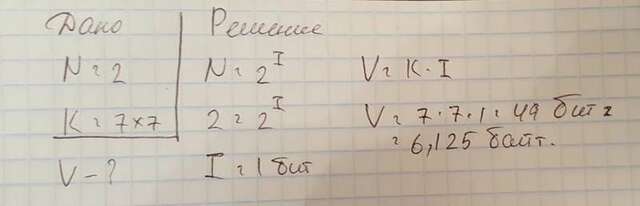 Дано Решение
N = 2 N = 2^I V = K · I
K = 7×7 2 = 2^I V = 7 · 7 · 1 = 49 бит =
= 6,125 байт.
V - ? I = 1 бит